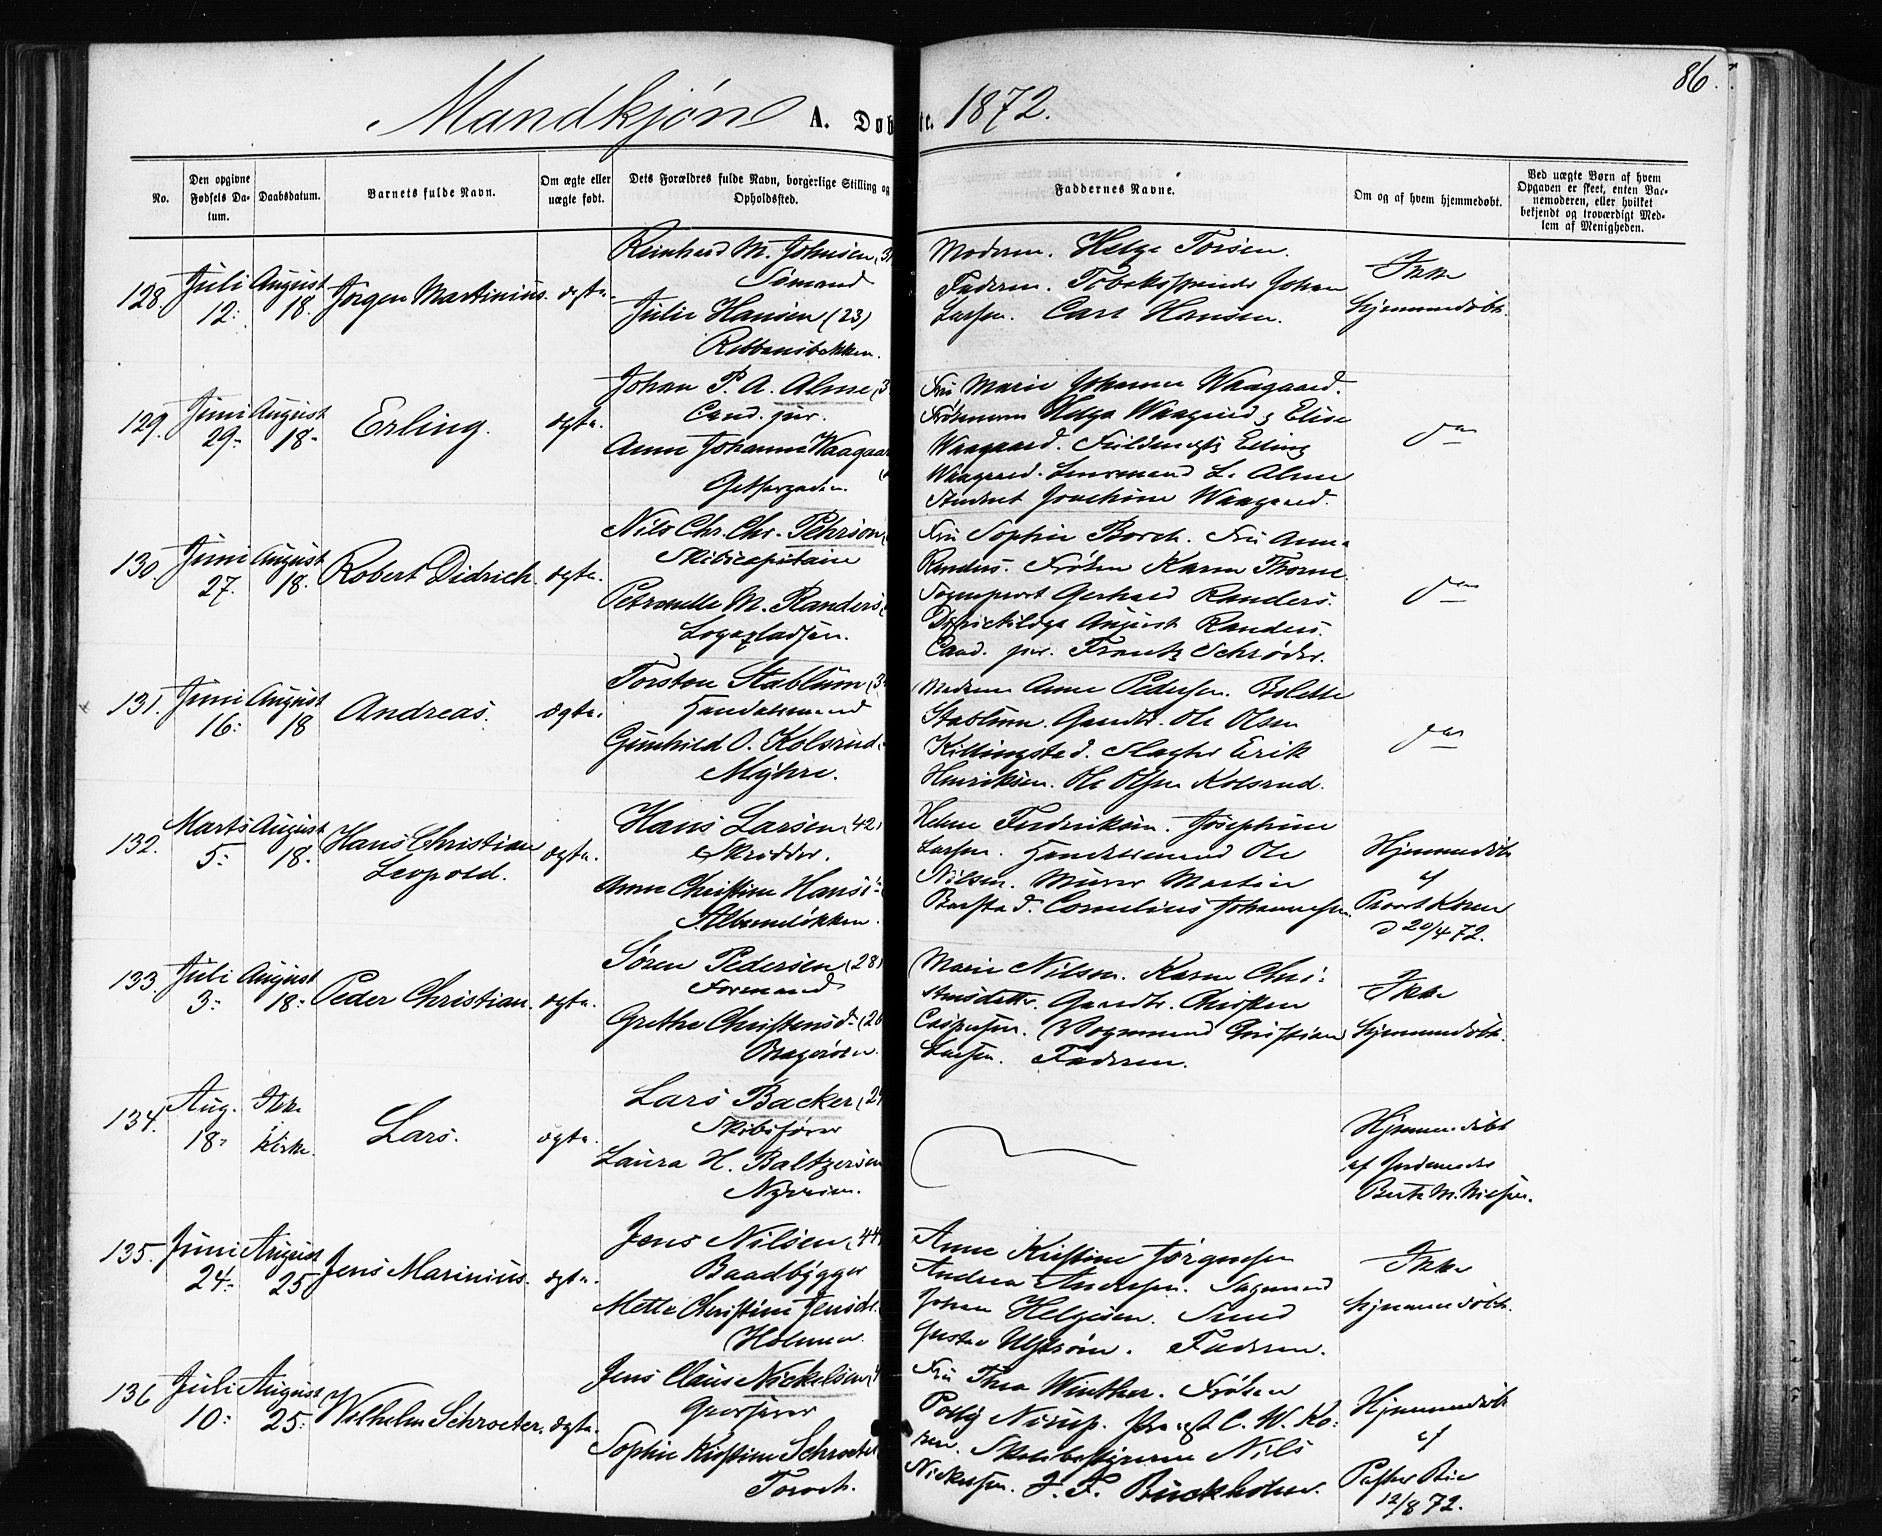 86.
Mandkjøn A. Døbte. 1872.
No.
Den opgivne Fødsels Datum.
Daabsdatum.
Barnets fulde Navn.
Om ægte eller uægte født.
Dets Forældres fulde Navn, borgerlige Stilling og Opholdssted.
Faddernes Navne.
Om og af hvem hjemmedøbt.
Ved uægte Børn af hvem Opgaven er skeet, enten Barnemoderen, eller hvilket bekjendt og troværdigt Medlem af Menigheden.
128. Juli 12. August 18. Jørgen Martinius. ægte.
Reinhard M. Johnsen (3
Sømand
Julie Hansen (23)
Moderen. Helge Torsen.
Faderen. Johan
Larsen. Carl Hansen.
Ikke
hjemmedøbt.
129. Juni 29. August 18. Erling. ægte.
Johan P. A. Alme (3
Cand. jur.
Anne Johanne Waagaar
Fru Marie Johanne Waagaard.
Helga Waagaard & Elise
Waagaard. Erling
Waagaard. L. Alme
Student Joachim Waagaard.
do
130. Juni 27. August 18. Robert Didrich. ægte.
Nils Chr. Chr. Pehrson
Skibscapitaine
Petronelle M. Randers
Fru Sophie Borch. Fru Anna
Randers. Frøken Karen Thorne.
Gerhard Randers.
August Randers.
Cand. jur. Frantz Schrøder.
do
131. Juni 16. August 18 Andreas. ægte.
Torsten Stablum (3
Handelsmand
Gunhild O. Kolsrud
Myhre.
Anne Pedersen. Bolette
Stablum. Gaardbr. Ole Olsen
Killingstad. Slagter Erik
Henriksen. Ole Olsen Kolsrud.
do
132. Marts 5. August 18. Hans Christian Leopold. ægte.
Hans Larsen (42)
Skrædder.
Anne Christine Hansd.
Helene Fredriksen. Josephine
Larsen. Handelsmand Ole
Nilsen. Murer Martin
Barstad. Cornelius Johannesen.
Hjemmedøbt
af
Provst Koren
d 20/4 72.
133. Juli 3. August 18. Peder Christian. ægte.
Søren Pedersen (28)
Formand
Grethe Christensd. (26
Bragerøen.
Marie Nilsen. Karen Chri-
stensdatter. Gaardbr. Christen
Caspersen. Vognmand Christian
Larsen. Faderen.
Ikke
hjemmedøbt.
134. Aug. 18. Ikke i Kirke. Lars. ægte.
Lars Backer (29
Skibsfører
Laura H. Baltzersen
Nyveien.
Hjemmedøbt
af Jordemoder
M. Nielsen.
135. Juni 24. August 25. Jens Marinius. ægte.
Jens Nilsen (44
Baadbygger
Mette Christine Jensdr.
Holmen.
Anne Kristine Jørgensen
Andrea Andersen.
Johan Helgesen. Smed
Gustav Ulstrøm. Faderen.
Ikke
hjemmedøbt.
136 Juli 10. August 25. Wilhelm Schroeter. ægte.
Jens Claus Nickelsen (4
Sophie Kristine Schroeter
Torvet.
Fru Thea Winther. Frøken
Polly Nirup. Provst C. W. Ko-
ren. Skolebestyrerne Nils
Nickelsen. J. F. Buckholm.
Hjemmedøbt
af
12/8 72.